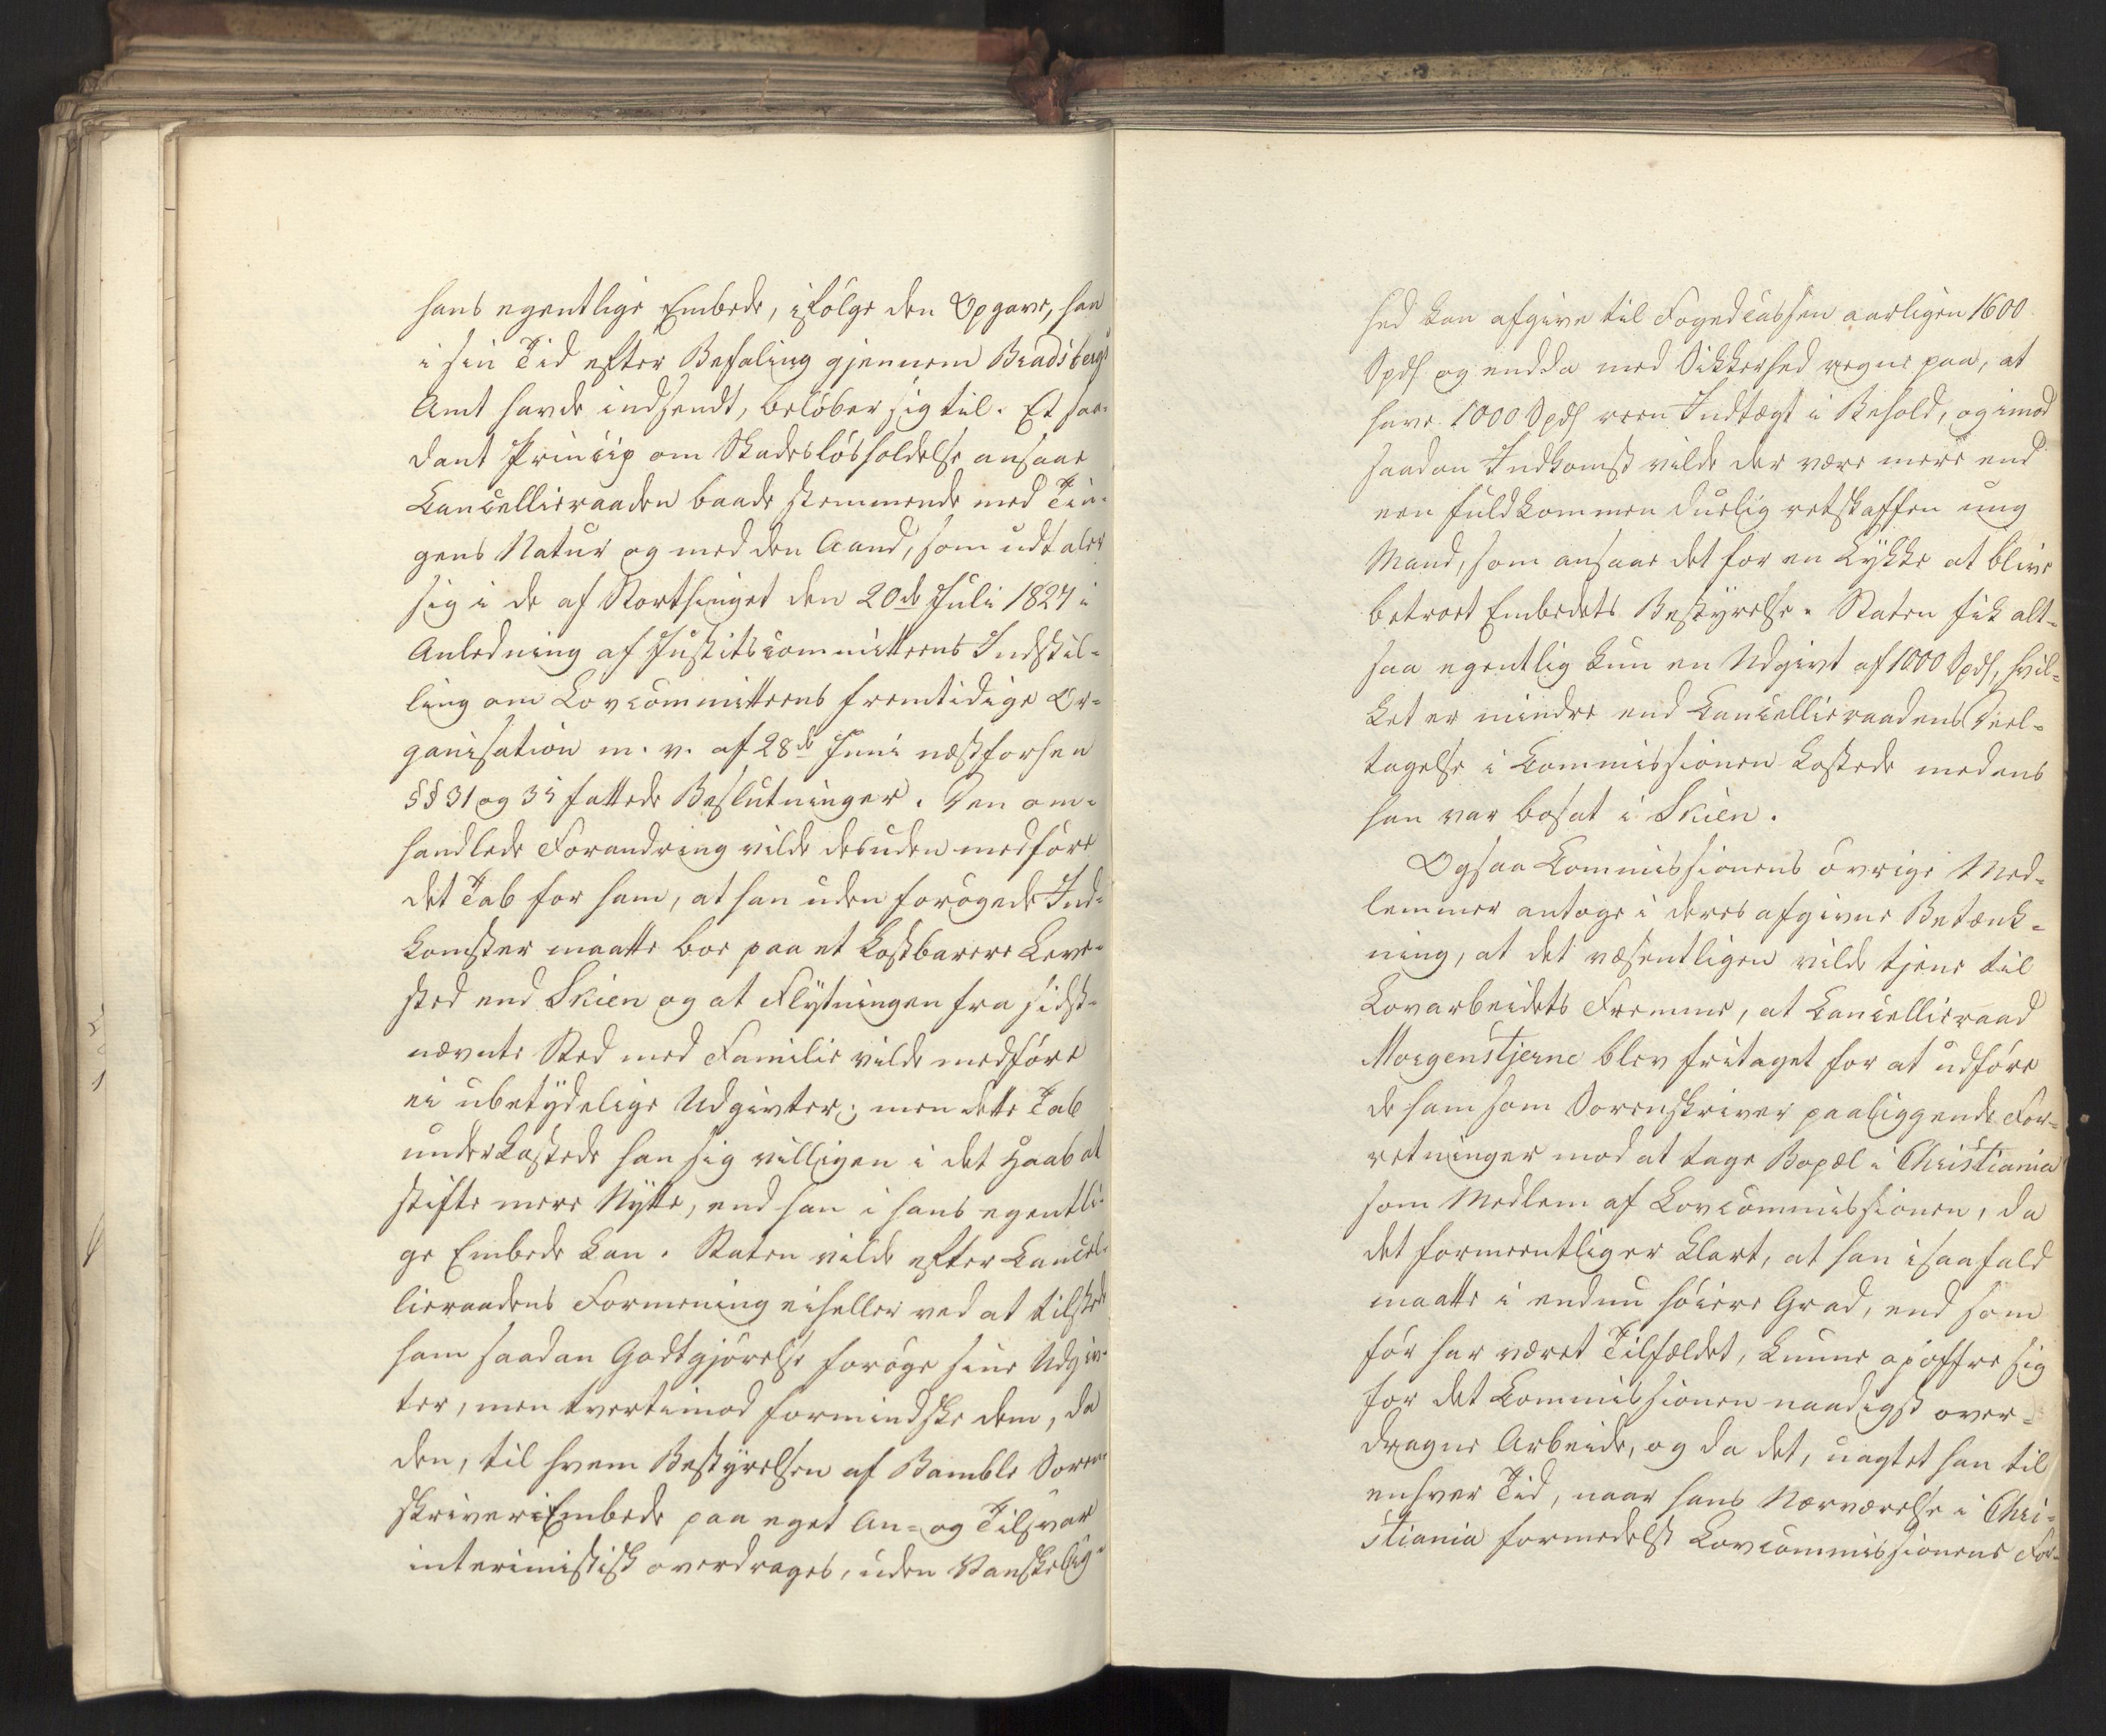 hans egentlige Embede, ifølge den Opgave, han
i sin Tid efter Befaling gjennem Bradsbergs
Amt havde indsendt, beløber sig til. Et saa-
dant Princip om Skadesløsholdelse ansaae
Cancellieraaden baade stemmende med Tin-
gens Natur og med den Aand, som udtaler
sig i de af Storthinget den 20de Juli 1827 i
Anledning af Justitscommitteens Indstil-
ling om Lovcommitteens fremtidige Or-
ganisation m. v. af 28de Juni næstforhen
§§ 31 og 35 fattede Beslutninger. Den om-
handlede Forandring vilde desuden medføre
det Tab for ham, at han uden forøgede Ind-
komster maatte boe paa et kostbarere Leve-
sted end Skien og at Flytningen fra sidst-
nævnte Sted med Familie vilde medføre
ei ubetydelige Udgivter; men dette Tab
underkastede han sig villigen i det Haab at
stifte mere Nytte, end han i hans egentli-
ge Embede kan. Staten vilde efter Cancel-
lieraadens Formening eiheller ved at tilstede
ham saadan Godtgjørelse forøge sine Udgiv-
ter, men tvertimod formindske dem, da
den, til hvem Bestyrelsen af Bamble Soren-
skriveriEmbede paa eget An- og Tilsvar
interimistisk overdrages, uden Vanskelig-
hed kan afgive til Fogedcassen aarligen 1600
Spd og endda med Sikkerhed regne paa, at
have 1000 Spd reen Indtægt i Behold, og imod
saadan Indkomst vilde der være mere end
een fuldkommen duelig retskaffen ung
Mand, som ansaae det for en Lykke at blive
betroet Embedets Bestyrelse. Staten fik alt-
saa egentlig kun en Udgivt af 1000 Spd, hvil-
ket er mindre end Cancellieraadens Deel-
tagelse i Commissionen kostede medens
han var bosat i Skien.
Ogsaa Commissionens øvrige Med-
lemmer antoge i deres afgivne Betænk-
ning, at det væsentligen vilde tjene til
Lovarbeidets Fremme, at Cancellieraad
Morgenstjerne blev fritaget for at udføre
de ham som Sorenskriver paaliggende For-
retninger mod at tage Bopæl i Christiania
som Medlem af Lovcommissionen, da
det formeentlig er klart, at han isaafald
maatte i endnu høiere Grad, end som
før har været Tilfældet, kunne opoffre sig
for det Commissionen naadigst over-
dragne Arbeide, og da det, uagtet han til
enhver Tid, naar hans Nærværelse i Chri-
stiania formedelst Lovcommissionens For-